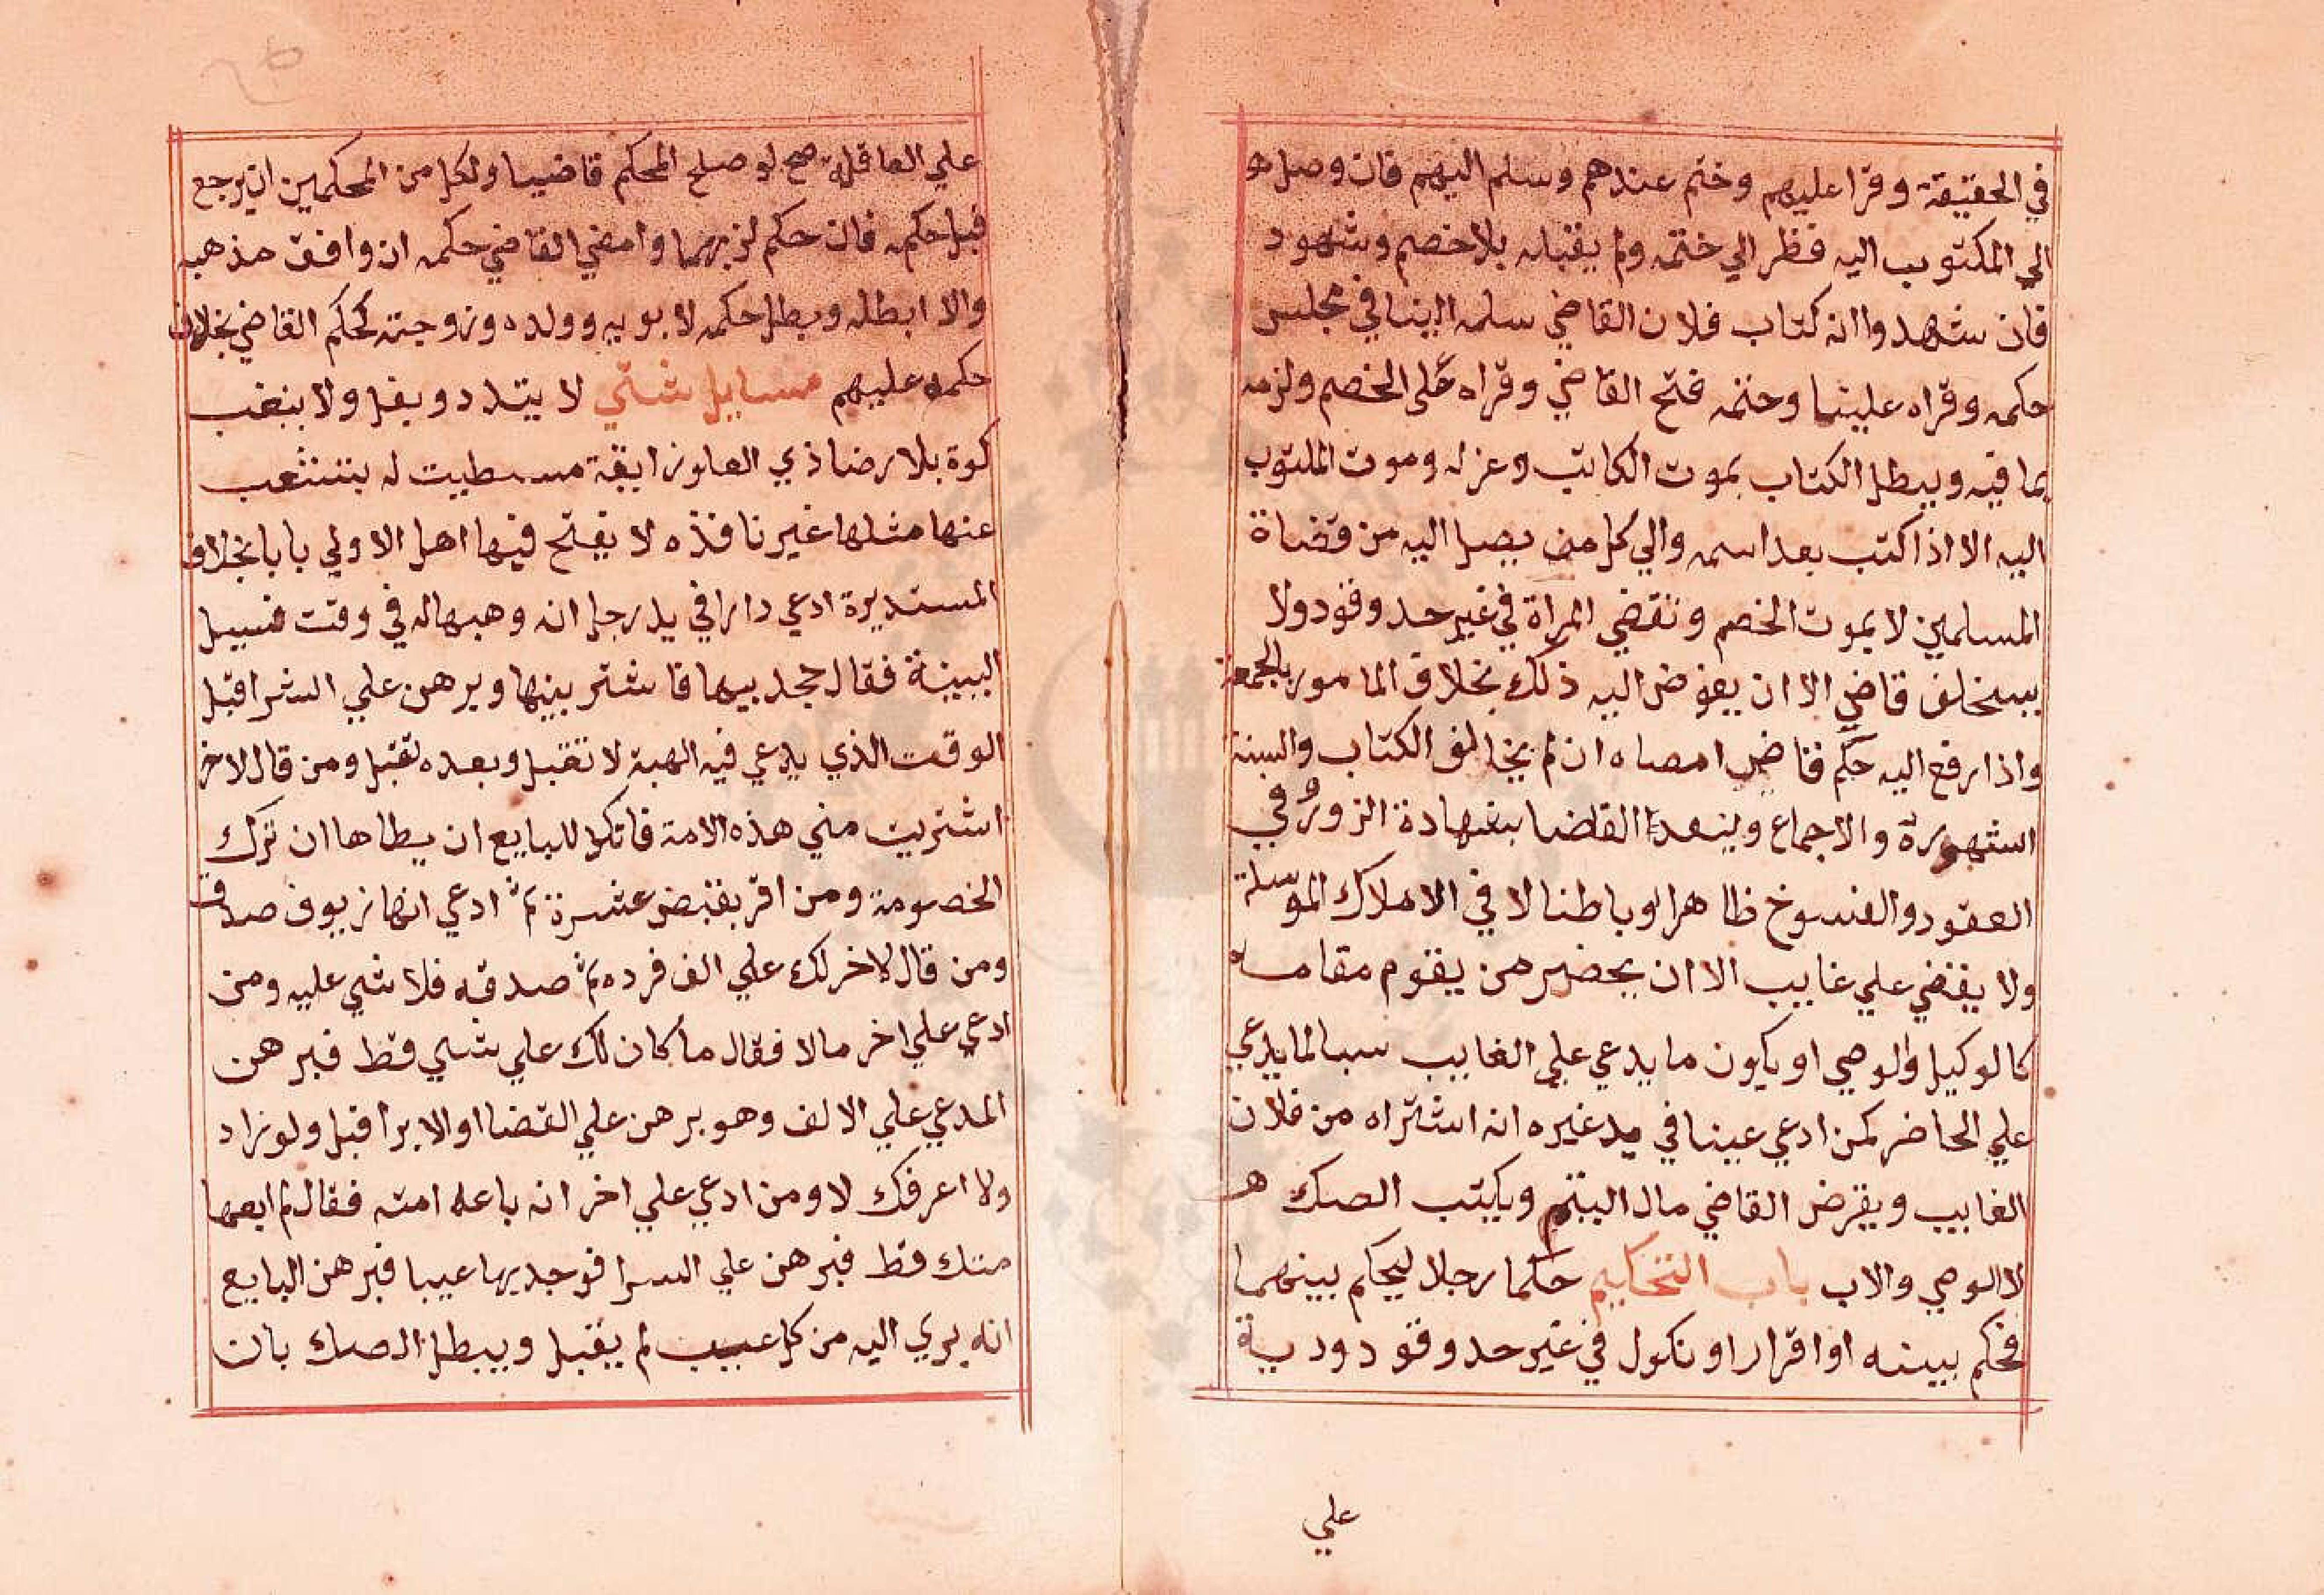 في الحقيقة وقرا عليهم وختم عندهم وسلم اليهم فان وصل هو
الي المكتوب اليه فظر الي ختمه ولم يقبله بلا خصم وشهود
فان شهدوا انه كتاب فلان القاضي سلمه الينا في مجلس
حكمه وقراه علينا وختمه فتح القاضي وقراه علي الخصم ولزمه
بما فيه ويبطل الكتاب بموت الكاتب وعزله وموت المكتوب
اليه الا اذا كتب بعد اسمه والي كل من يصل اليه من قضاة
المسلمين لا بموت الخصم وتقضي المراة في غير حد وقود ولا
يستخلف قاضي الا ان يفوض اليه ذلك بخلاف المامور بالجمعة
واذا رفع اليه حكم قاض امضاه ان لم يخالف الكتاب والسنة
المشهورة والاجماع وينفد القضا بشهادة الزور في
العقود والفسوخ ظاهرا وباطنا لا في الاملاك المرسلة
ولا يقضي علي غايب الا ان يحضر من يقوم مقامه
كالوكيل والوصي او يكون ما يدعي علي الغايب سببا لما يدعي
علي الحاضر كمن ادعي عينا في يد غيره انه اشتراه من فلان
الغايب ويقرض القاضي مال اليتيم ويكتب الصك
لا الوصي والاب باب التحكيم حكما رجلا ليحكم بينهما
فحكم ببينه او اقرار او نكول في غير حد وقود ودية
علي
علي العاقلة صح لو صلح المحكم قاضيا ولكل من المحكمين ان يرجع
قبل حكمه فان حكم لزمهما وامضي القاضي حكمه ان وافق مذهبه
والا ابطله وبطل حكمه لابويه وولده وزوجته كحكم القاضي بخلاف
حكمه عليهم مسايل شتي لا يتد ذو سفل ولا ينقب
كوة بلا رضا ذي العلو زايغة مسطيت له يتشعب
عنها مثلها غير نافذه لا يفتح فيها اهل الاولي بابا بخلاف
المستديرة ادعي دارا في يد رجل انه وهبها له في وقت فسيل
البينة فقال جحد بيها فاشتر بينها وبرهن علي الشرا قبل
الوقت الذي يدعي فيه الهبة لا تقبل وبعده تقبل ومن قال لاخر
اشتريت مني هذه الامة فانكر للبايع ان يطاها ان ترك
الخصومة ومن اقر بقبض عشرة ثم ادعي انها زيوف صدق
ومن قال لاخر لك علي الف فرده ثم صدقه فلا شي عليه ومن
ادعي علي اخر مالا فقال ما كان لك علي شي قط فبرهن
المدعي علي الالف وهو برهن علي القضا او الابرا قبل ولو زاد
ولا اعرفك لا ومن ادعي علي اخر انه باعه امته فقال لم ابعها
منك قط فبرهن علي الشرا فوجد بها عيبا فبرهن البايع
انه بري اليه من كل عيب لم يقبل ويبطل الصك بان